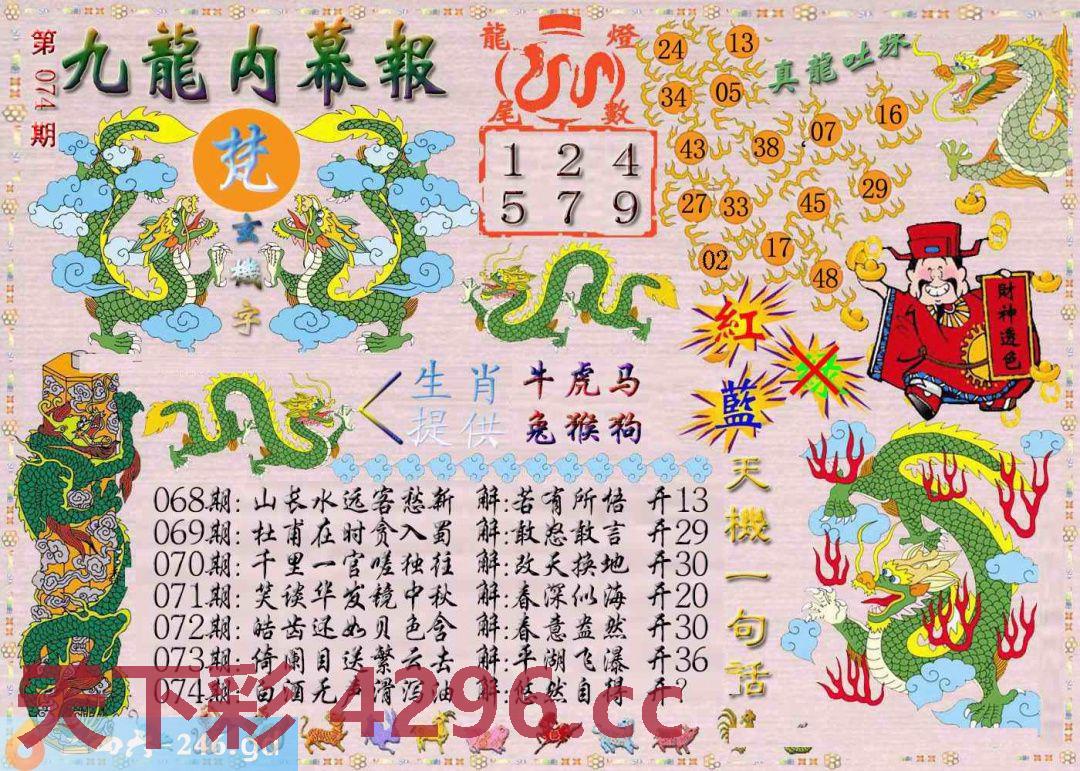 第074期
九龍内幕報
梵
玄機字
龍尾燈數
1 2 4
5 7 9
真龍吐珠
24
13
34
05
16
07
43
38
29
27
33
45
17
02
48
財神透色
紅
藍
生肖提供
牛虎马
兔猴狗
天機一句话
068期: 山长水远客愁新 解:若有所悟 开13
069期: 杜甫在时贪入蜀 解:敢怒敢言 开29
070期: 千里一官嗟独往 解:改天换地 开30
071期: 笑谈华发镜中秋 解:春深似海 开20
072期: 皓齿还如贝色含 解:春意盎然 开30
073期: 倚阑目送繁云去 解:平湖飞瀑 开36
074期: 白酒无声滑泻油 解:悠然自得 开?
天下彩 4296.cc
=246.gd